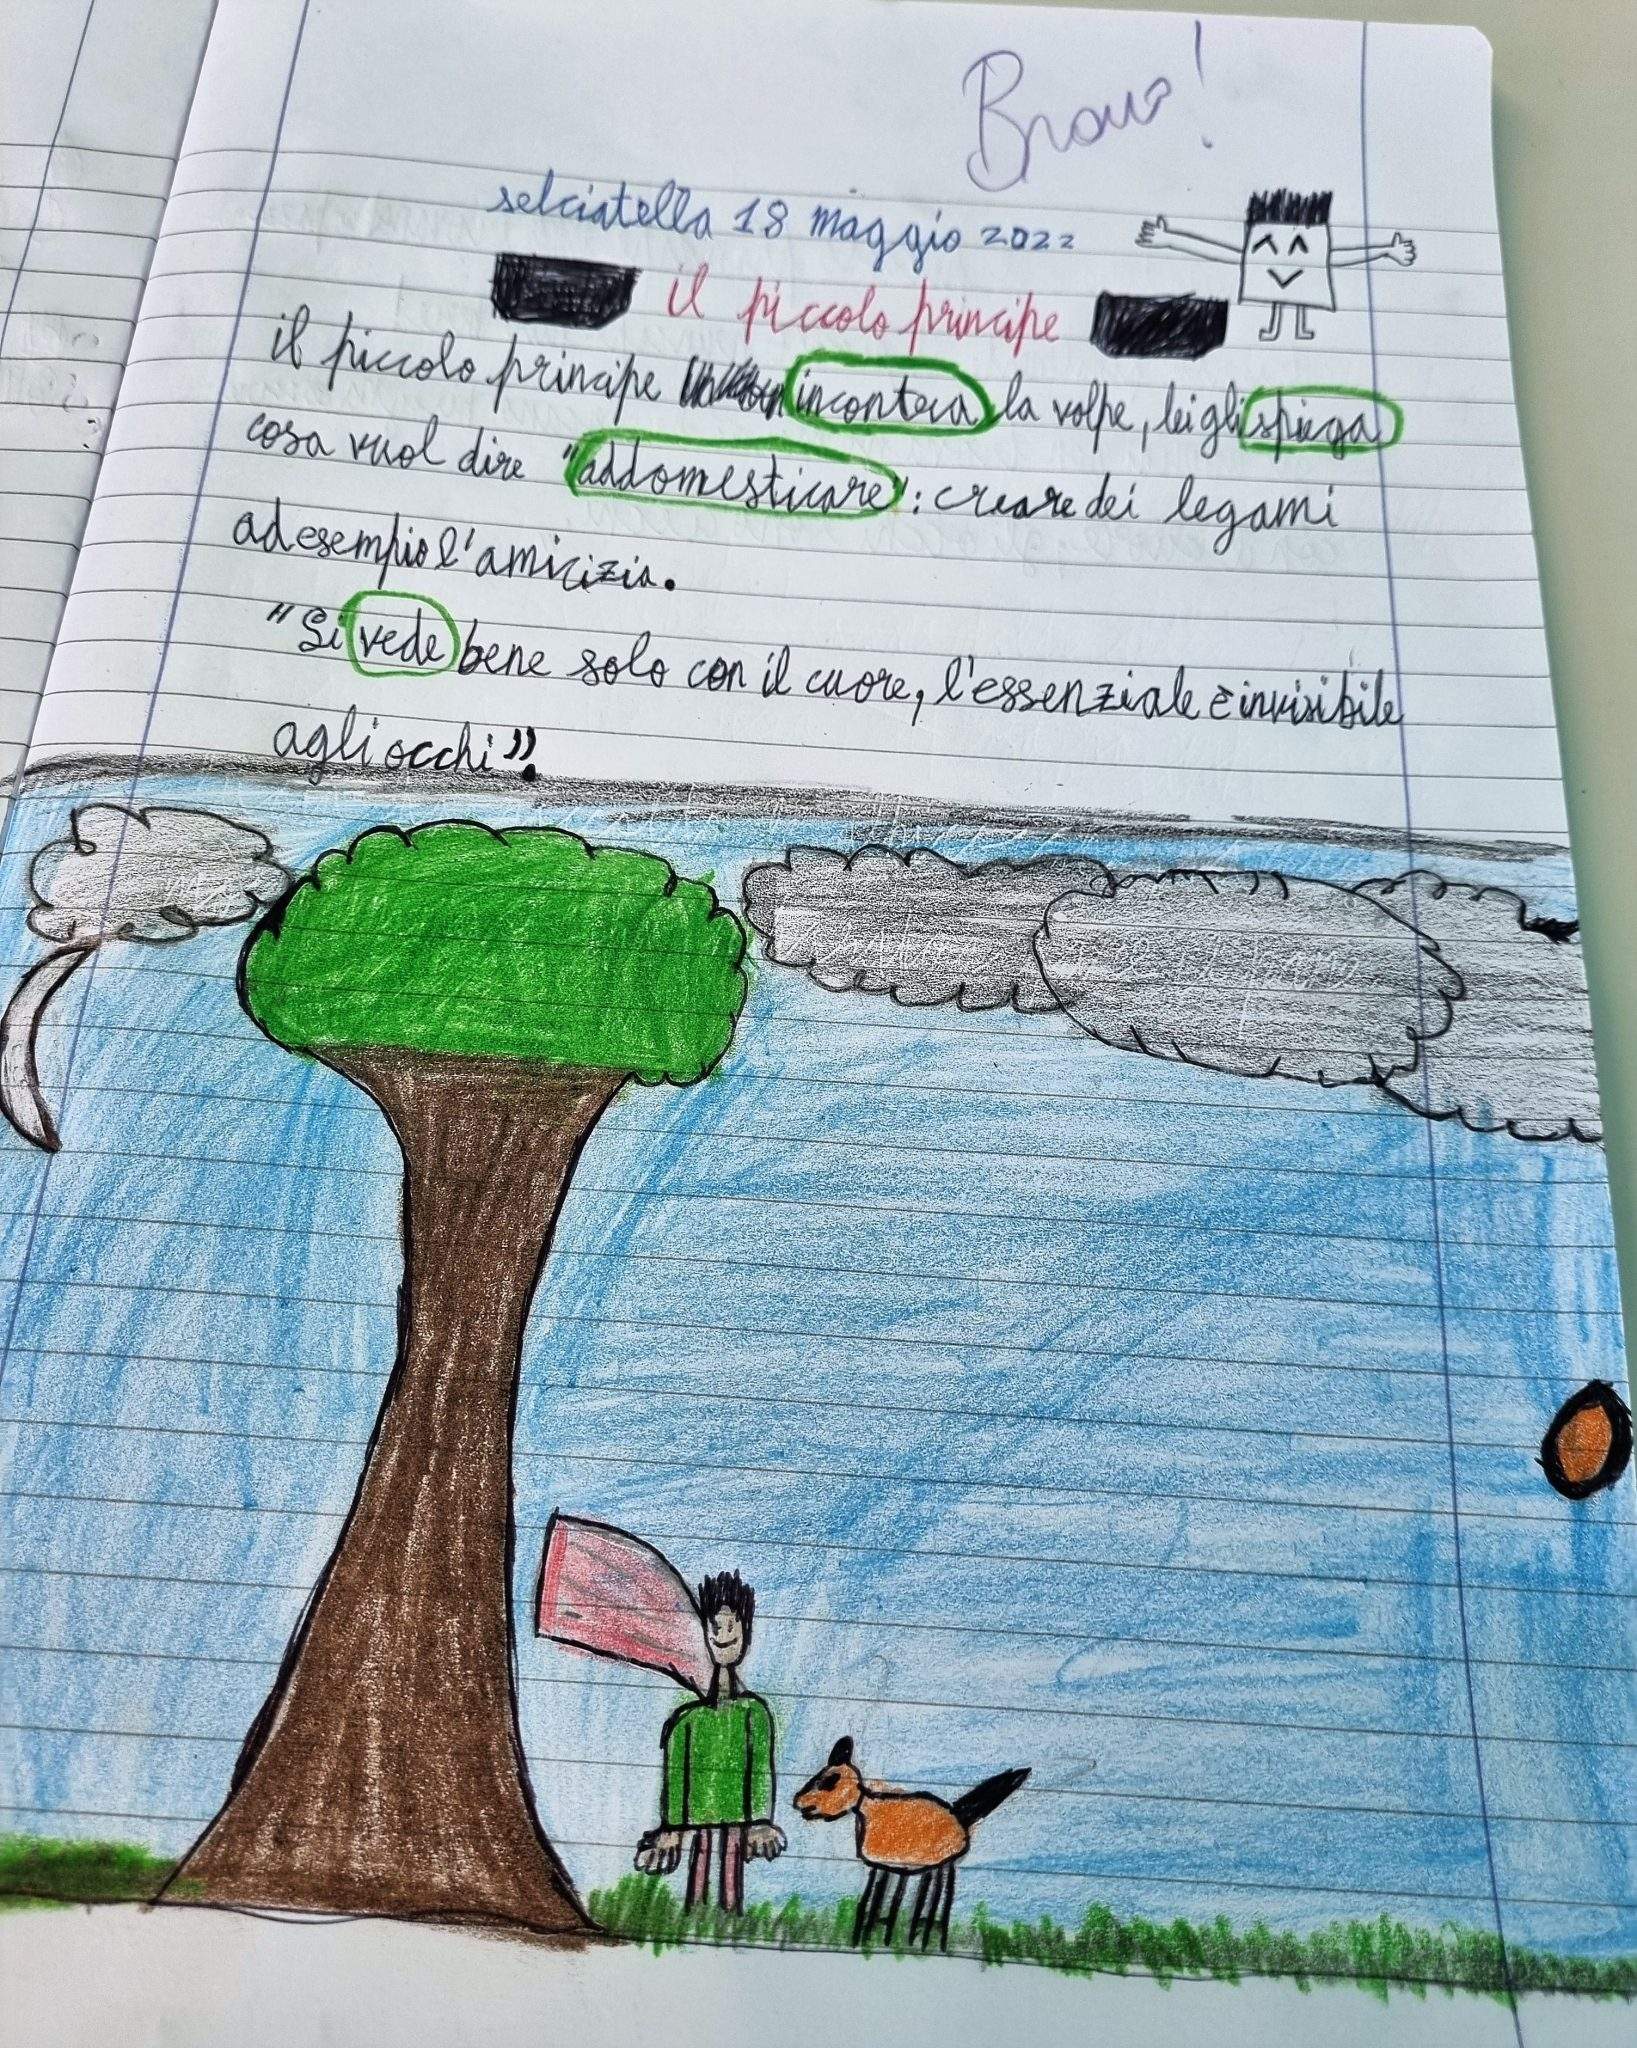 Bravo!
selciatella 18 maggio 2022
il piccolo principe
il piccolo principe incontra la volpe, lei gli spiega
cosa vuol dire "addomesticare": creare dei legami
ad esempio l'amicizia.
"Si vede bene solo con il cuore, l'essenziale è invisibile
agli occhi".